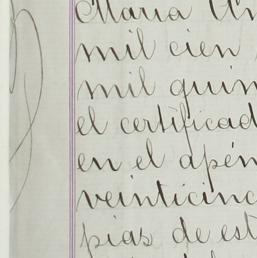 Maria
mil cien
mil quin
el certificad
en el apén
veinticinc
pias de est